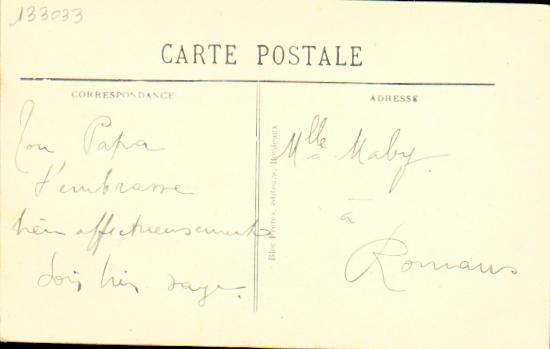 133033
CARTE POSTALE
CORRESPONDANCE
ADRESSE
Ton Papa
t'embrasse
bien affectueusement
sois bien sage.
Bloc Frères, éditeurs, Bordeaux
Mlle Maby.
à
Romans